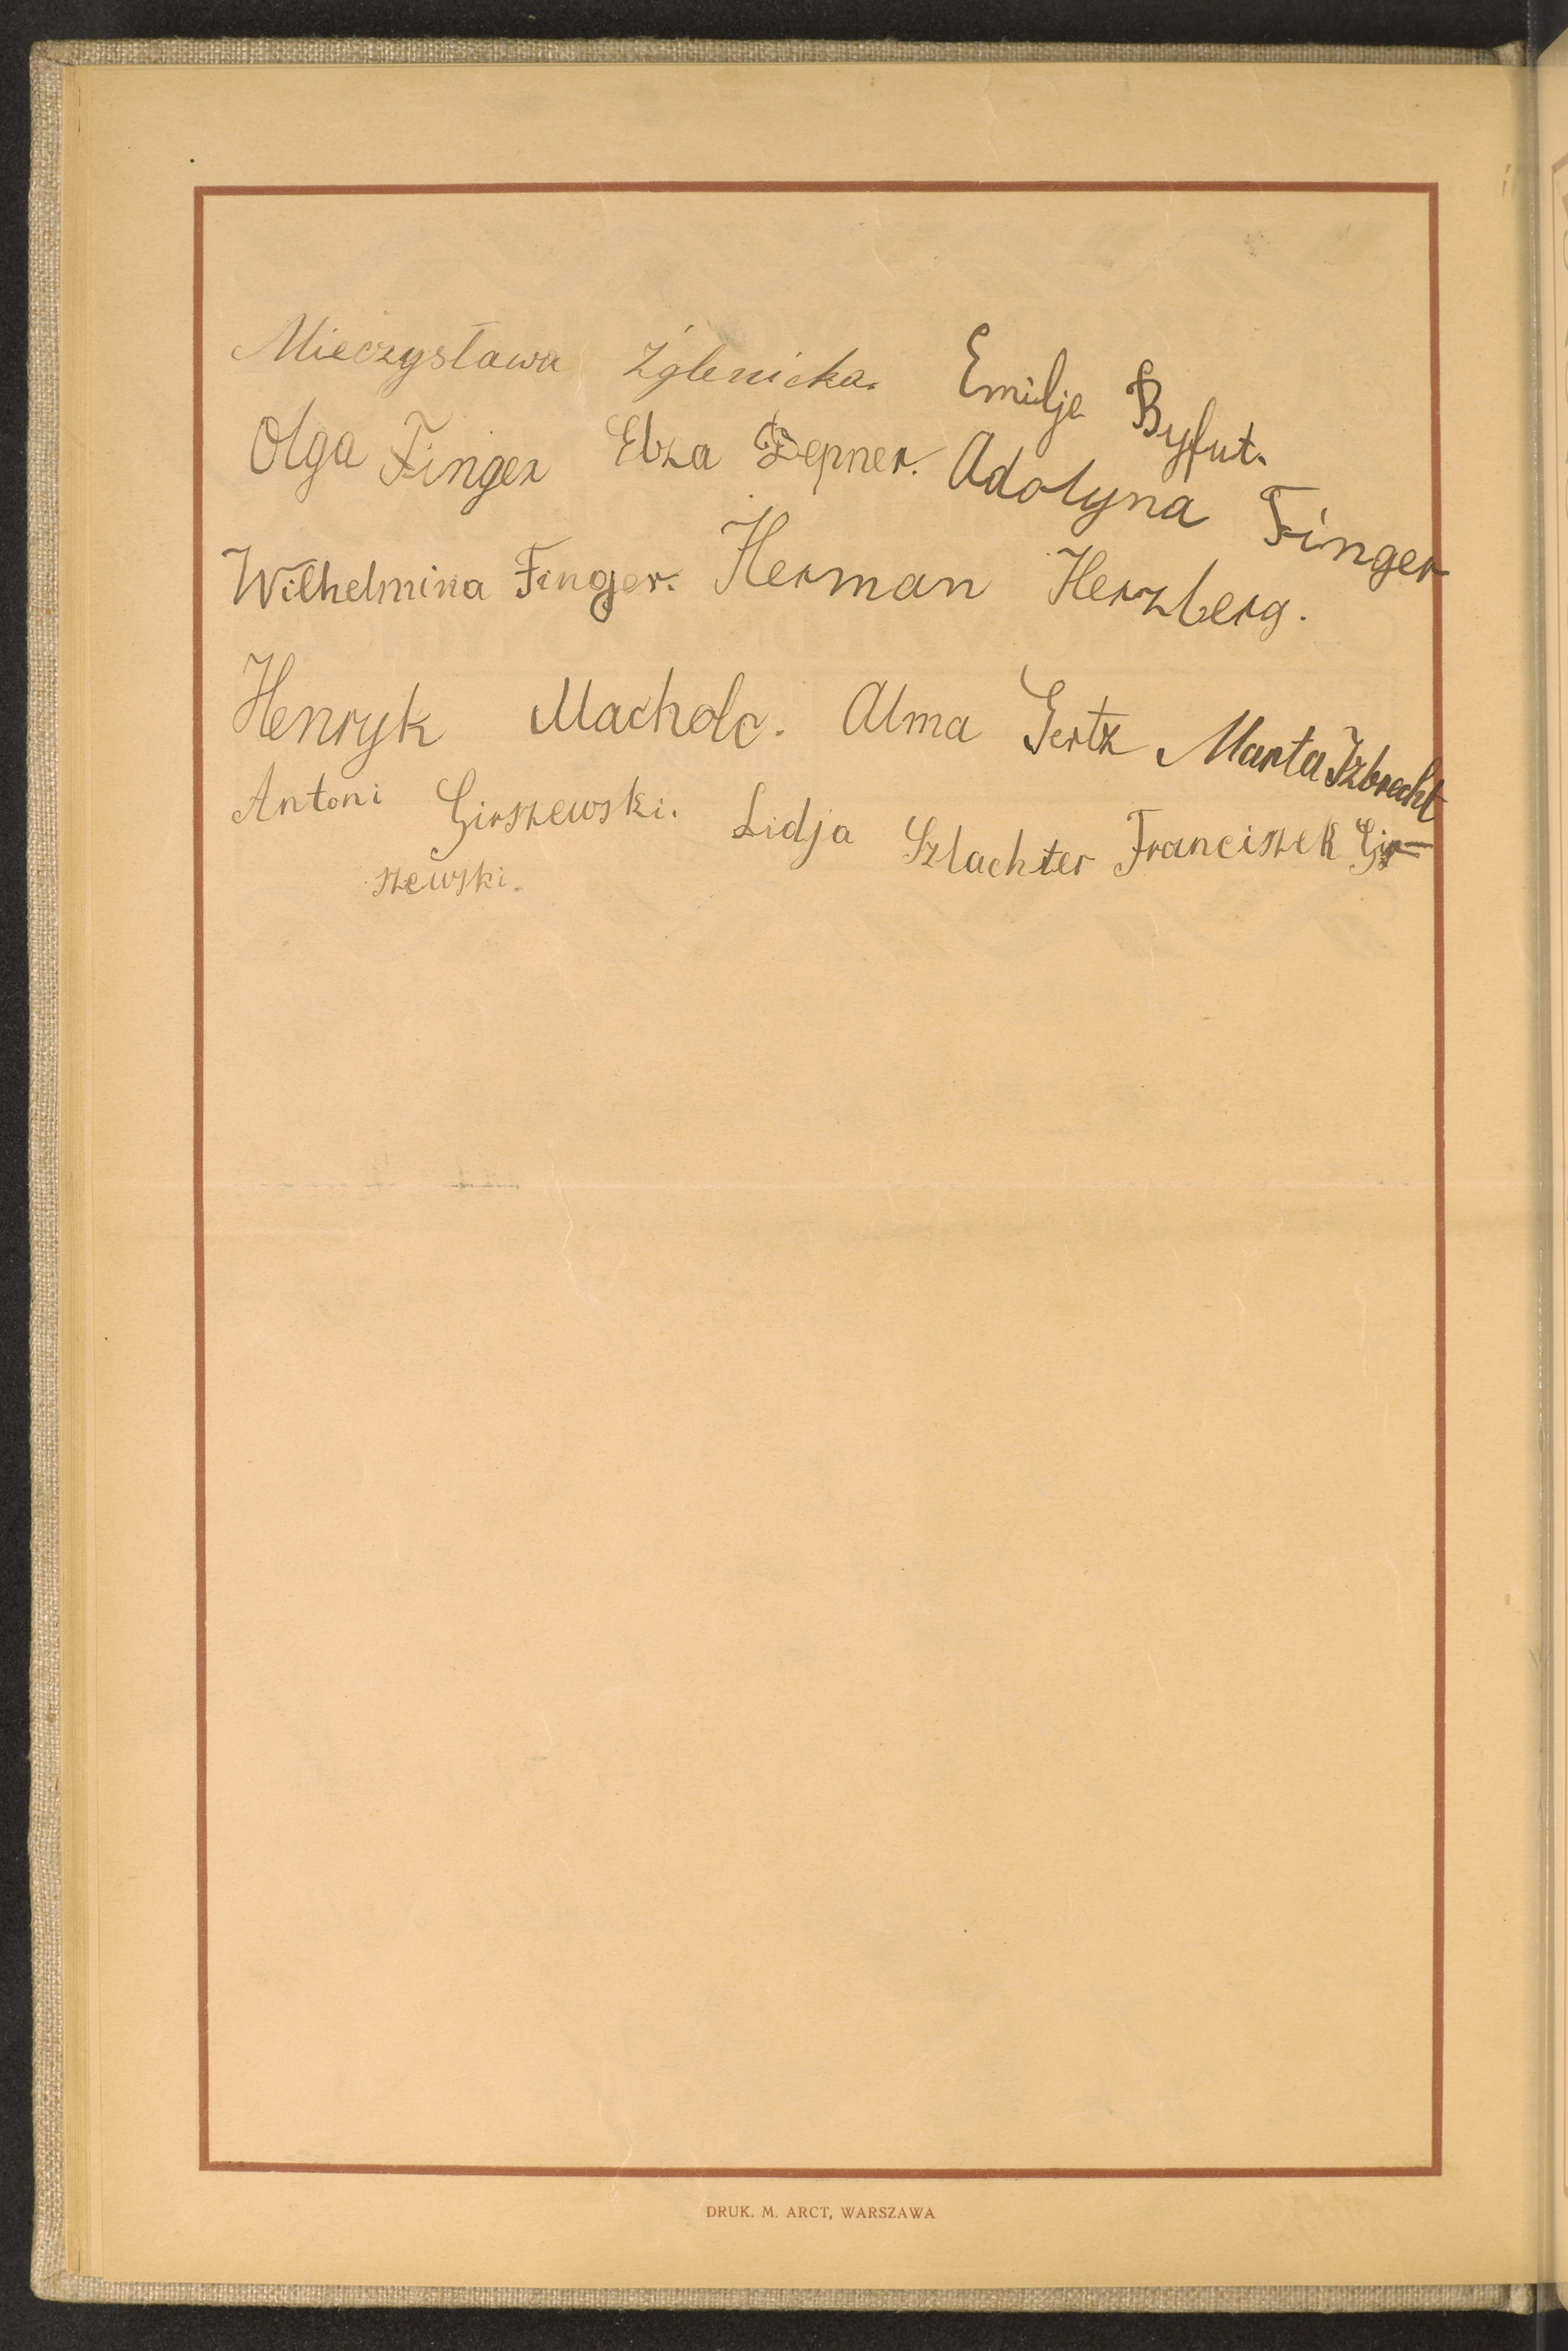 Mieczysława Żglenicka. Emilje Byfut.
Olga Finger Elza Depner. Adolyna Finger
Wilhelmina Finger. Herman Herzberg.
Henryk Macholc. Alma Gertz Marta Izbrecht
Antoni Girszewski. Lidja Szlachter Franciszek Gir=
szewski.
DRUK. M. ARCT, WARSZAWA